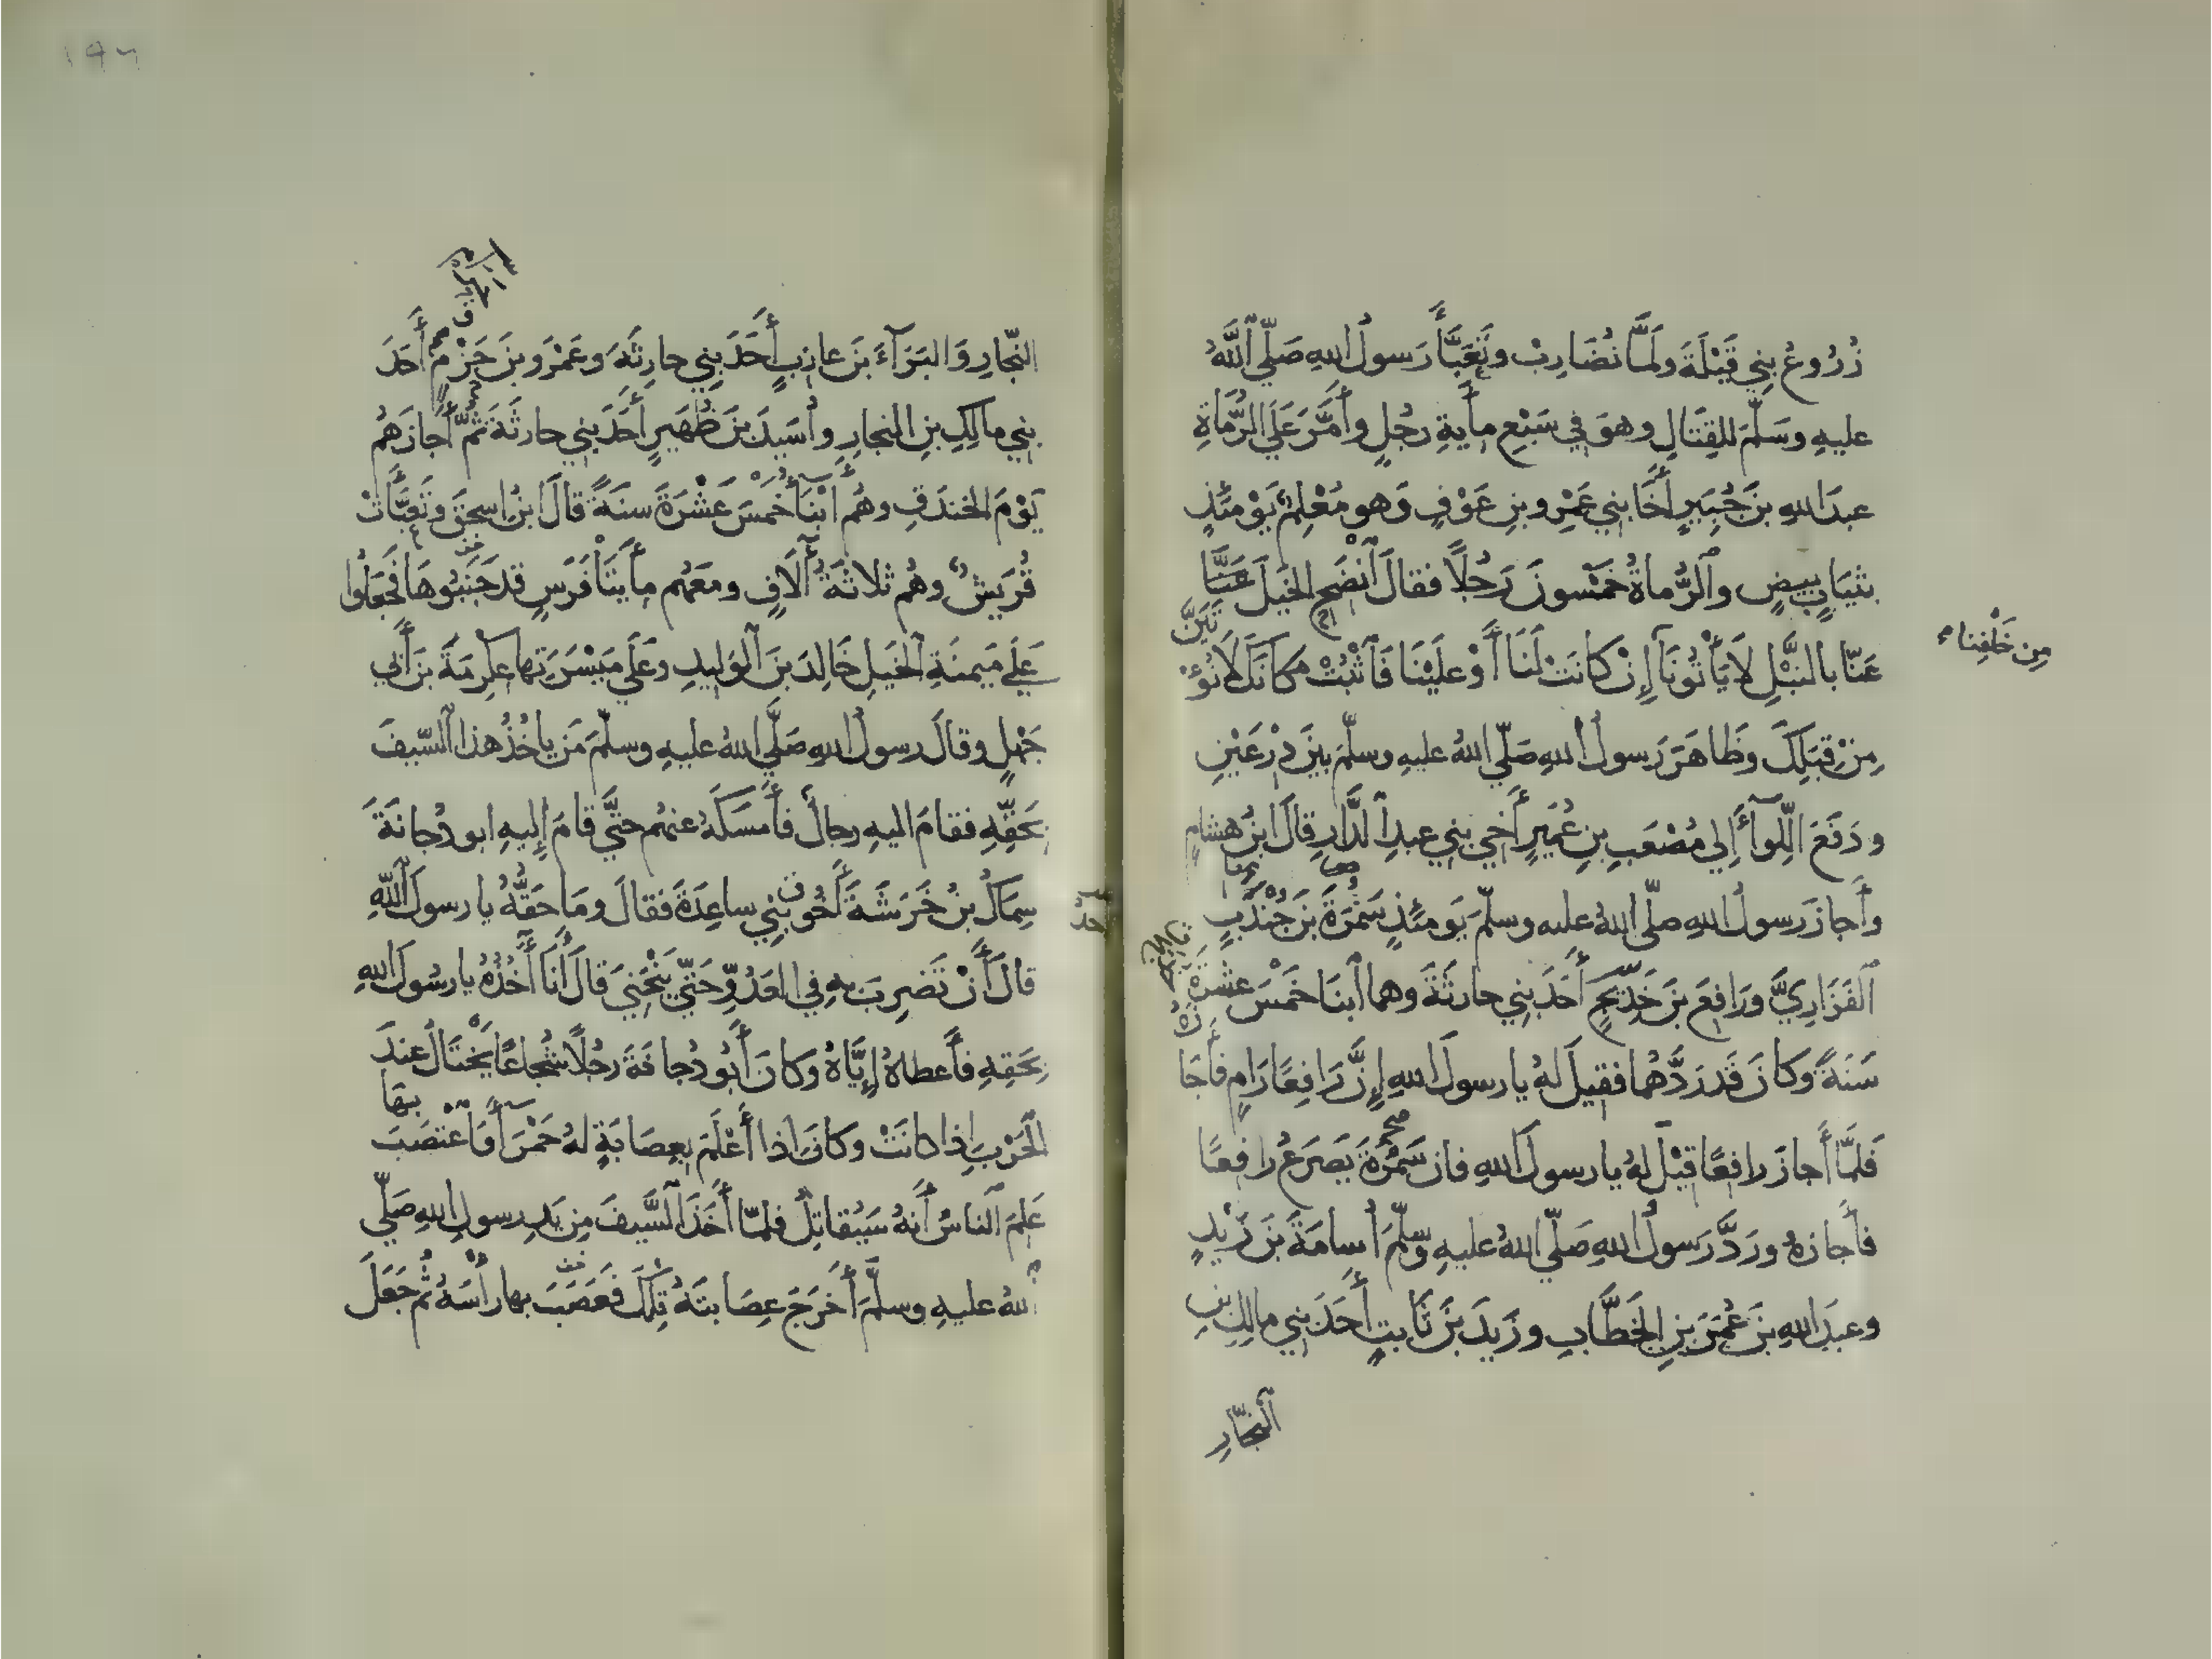 زُرُوعُ بَنِي قَيْلَةَ ولَمَّا نُضَارِبْ وتَعَبَّأَ رَسولُ اللهِ صَلّى اللهُ
عليهِ وسَلّمَ للقِتَالِ وهوَ في سَبْعِ مأيةِ رجُلٍ وأَمَّرَ عَلَى الرُّمَاةِ
عبدَ اللهِ بنَ جُبَيرٍ أَخَا بني عَمْرِو بنِ عَوْفٍ وَهو مُعْلِمٌ يَوْمَئذٍ
بثيَابٍ بيضٍ والرُّماةُ خمْسونَ رَجُلًا فقالَ انْضَحِ الخيلَ عَنَّا
عَنّا بالنَّبْلِ لَا يَأْتُونَا إِنْ كانَتْ لَنَا أَوْ عَلَيْنَا فَاثْبُتْ مكانَكَ لَا نُؤْتَيَنَّ
مِن خَلْفِنا
مِنْ قِبَلِكَ وظَاهَرَ رَسولُ اللهِ صَلّى اللهُ عليهِ وسلّمَ بيْنَ دِرْعَيْنِ
ودَفَعَ اللِّوآءَ إِلى مُصْعَبِ بنِ عُمَيرٍ أَخِي بني عبدِ الدَّارِ قالَ ابنُ هشامٍ
وأَجازَ رَسولُ اللهِ صلّى اللهُ عليه وسلّمَ يَومئذٍ سَمُرَةَ بنَ جُنْدَبٍ
الفَزَارِيَّ ورَافِعَ بنَ خَدِيجٍ أَحَدَ بني حارثَةَ وهما ابنَا خَمْسَ عشْرَةَ
سَنةً وكانَ قَد رَدَّهُما فقيلَ لهُ يا رسولَ اللهِ إِنَّ رَافِعًا رَامٍ فأَجَازَهُ
فَلمَّا أَجازَ رافعًا قيْلَ لهُ يا رسولَ اللهِ فإن سَمُرةَ يَصْرَعُ رافعًا
فأَجازهُ ورَدَّ رَسولُ اللهِ صَلّى اللهُ عليهِ وسلّمَ أُسامَةَ بنَ زَيْدٍ
وعبدَ اللهِ بنَ عُمَرَ بنِ الخَطَّابِ وزَيدَ بنَ ثَابتٍ أَحَدَ بني مالِكِ بنِ
النجَّارِ
١٩٦
النّجّارِ وَالبَرَآءَ بنَ عازبٍ أَحَدَ بَنِي حارِثَةَ وعَمْرَو بنَ حَزْمٍ أَحَدَ
بني مالِكِ بنِ النجارِ وأُسَيدَ بنَ ظُهَيرٍ أَحَدَ بني حارثَةَ ثمَّ أَجازَهُم
يَوْمَ الخندَقِ وهُم أَبْنَأُ خَمْسَ عَشْرَةَ سنَةً قالَ ابنُ اسحَقَ وتَعَبَّأَتْ
قُرَيشٌ وهُم ثلاثَةُ آلَافٍ ومعَهُم مِأَيتَا فَرَسٍ قد جَنَبُوهَا فَجعَلُوا
عَلَى مَيمنَةِ الخَيلِ خَالِدَ بنَ الوَليدِ وعَلَى مَيْسَرَتِها عِكرمَةَ بنَ أَبي
جَهْلٍ وقالَ رسولُ اللهِ صَلَّى اللهُ عليهِ وسلّمَ مَن يأخُذُ هذا السّيفَ
بحَقِّهِ فقامَ اليهِ رجالٌ فأَمسَكَهُ عنهُم حتَّى قامَ إِليهِ ابو دُجانَةَ
سِمَاكُ بنُ خَرَشَةَ أَخُو بَني ساعِدَةَ فقالَ ومَا حَقّهُ يا رسولَ اللهِ
قالَ أَنْ تَضرِبَ بهِ في العَدُوِّ حَتّى يَنْحَنِيَ قالَ أَنَا آخُذُهُ يا رسُولَ اللهِ
بحَقِهِ فأَعطاهُ إِيَّاهُ وكانَ أَبُو دُجانةَ رجُلًا شُجاعًا يَخْتَالُ عندَ
الحَرْبِ إذا كانَتْ وكانَ إذا أَعْلَمَ بعِصَابَةٍ لهُ حَمْرَآءَ فَاعْتصَبَ بها
عَلِمَ الناسُ أَنهُ سَيُقاتِلُ فلمّا أَخَذَ السَّيفَ مِن يَدِ رسولِ اللهِ صَلّى
اللهُ عليهِ وسلّمَ أَخرَجَ عِصَابتَهُ تِلكَ فَعَصَبَ بها رأْسَهُ ثُم جَعَلَ